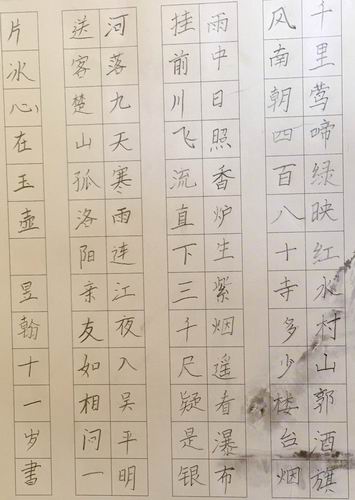 千里莺啼绿映红水村山郭酒旗
风南朝四百八十寺多少楼台烟
雨中日照香炉生紫烟遥看瀑布
挂前川飞流直下三千尺疑是银
河落九天寒雨连江夜入吴平明
送客楚山孤洛阳亲友如相问一
片冰心在玉壶 昱翰十一岁書